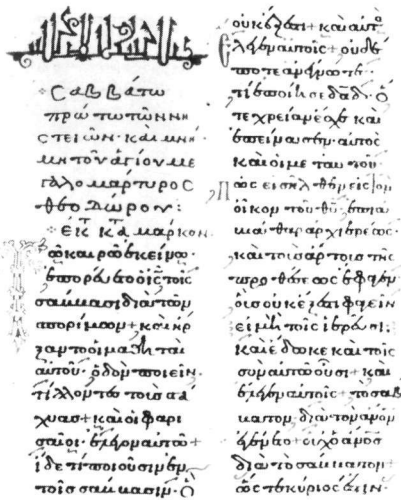 Σαββάτω
πρώτω τῶν νη
στειῶν· καὶ μνή
μη τοῦ ἁγίου με
γαλομάρτυρος
θεοδώρου:
ἐκ τ κτ μάρκον
Τῶ καιρῶ ἐκείνω
ἐπορεύετο ὁ ις τοῖς
σάββασι διὰ τῶν
σπορίμων + καὶ ἤρ
ξαντο οἱ μαθηταὶ
αὐτοῦ ὁδὸν ποιεῖν
τίλλοντες τοὺς στά
χυας + καὶ οἱ φαρι
σαῖοι ἔλεγον αὐτῶ +
ἴδε τί ποιοῦσιν ἐν
τοῖς σάββασιν· ὃ
οὐκ ἔξεστι + καὶ αὐτὸς
ἔλεγεν αὐτοῖς + οὐδέ
ποτε ἀνέγνωτε
τί ἐποίησε δαδ ὅ
τε χρείαν ἔσχε καὶ
ἐπείνασεν αὐτὸς
καὶ οἱ μετ αὐτοῦ·
πῶς εἰσῆλθεν εἰς τὸν
οἶκον τοῦ θυ ἐπὶ α
βιάθαρ ἀρχιερέως·
καὶ τοὺς ἄρτους τῆς
προθέσεως ἔφαγεν
οὓς οὐκ ἔξεστι φαγεῖν
εἰ μὴ τοῖς ἱερεῦσι·
καὶ ἔδωκε καὶ τοῖς
σὺν αὐτῶ οὖσι + καὶ
ἔλεγεν αὐτοῖς + τὸ σάβ
βατον διὰ τὸν ἄνον
ἐγένετο + οὐχ ὁ ἄνος
διὰ τὸ σάββατον +
ὥστε κύριός ἐστιν·